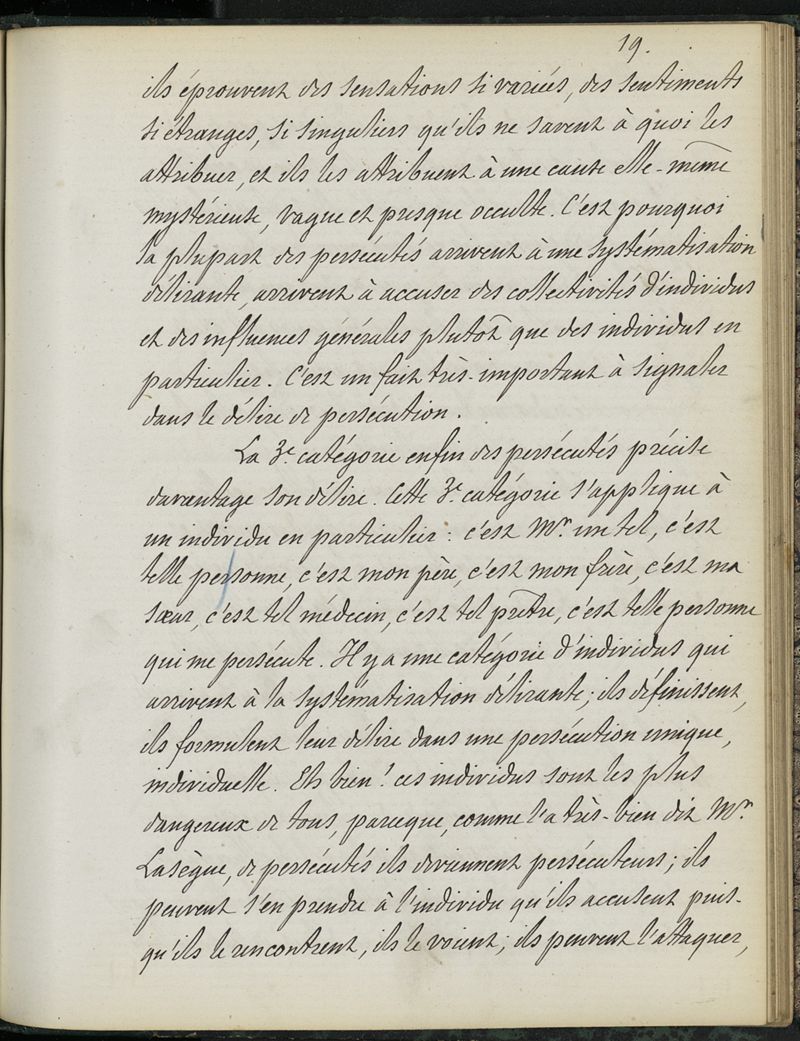 19.
ils éprouvent des sensations si variées, des sentiments
si étranges, si singuliers qu'ils ne savent à quoi les
attribuer, et ils les attribuent à une cause elle-même
mystérieuse, vague et presque occulte. C'est pourquoi
la plupart des persécutés arrivent à une systématisation
délirante, arrivent à accuser des collectivités d'individus
et des influences générales plutôt que des individus en
particulier. C'est un fait très-important à signaler
dans le délire de persécution.
La 3e. catégorie enfin des persécutés précise
davantage son délire. Cette 3e. catégorie s'applique à
un individu en particulier : c'est Mr. un tel, c'est
telle personne, c'est mon père, c'est mon frère, c'est ma
sœur, c'est tel médecin, c'est tel prêtre, c'est telle personne
qui me persécute. Il y a une catégorie d'individus qui
arrivent à la systématisation délirante; ils définissent,
ils formulent leur délire dans une persécution unique,
individuelle. Eh bien! ces individus sont les plus
dangereux de tous, parceque, comme l'a très-bien dit Mr.
Lasègue, de persécutés ils deviennent persécuteurs; ils
peuvent s'en prendre à l'individu qu'ils accusent puis-
qu'ils le rencontrent, ils le voient; ils peuvent l'attaquer,